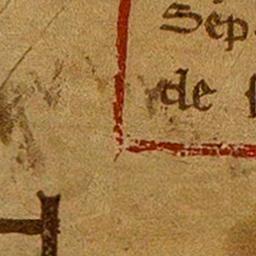 Sep
de